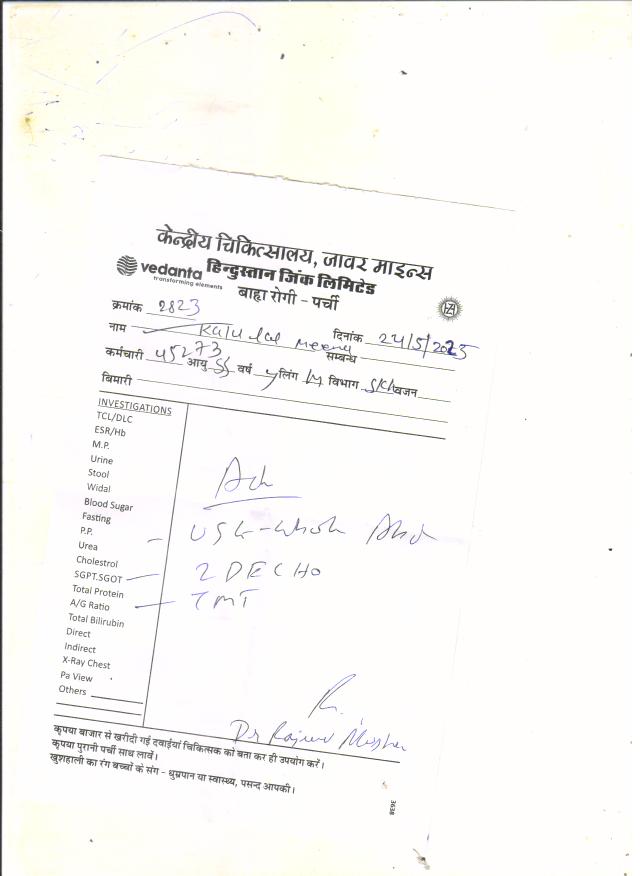 केन्द्रीय चिकित्सालय, जावर माइन्स
vedanta हिन्दुस्तान जिंक लिमिटेड
transforming elements
बाह्य रोगी - पर्ची
क्रमांक 2823
नाम Kalu lal Meena दिनांक 24/5/2025
सम्बन्ध
कर्मचारी 45273 आयु 55 वर्ष y लिंग M विभाग वजन
बिमारी
INVESTIGATIONS
TCL/DLC
ESR/Hb
M.P.
Urine
Stool
Widal
Blood Sugar
Fasting
P.P.
Urea
Cholestrol
SGPT.SGOT
Total Protein
A/G Ratio
Total Bilirubin
Direct
Indirect
X-Ray Chest
Pa View
Others
Adv
USG-Whole Abd
2DECHO
TMT
Dr Rajeev
कृपया बाजार से खरीदी गई दवाईयां चिकित्सक को बता कर ही उपयोग करें।
कृपया पुरानी पर्ची साथ लावें।
खुशहाली का रंग बच्चों के संग - धुम्रपान या स्वास्थ्य, पसन्द आपकी।
3638